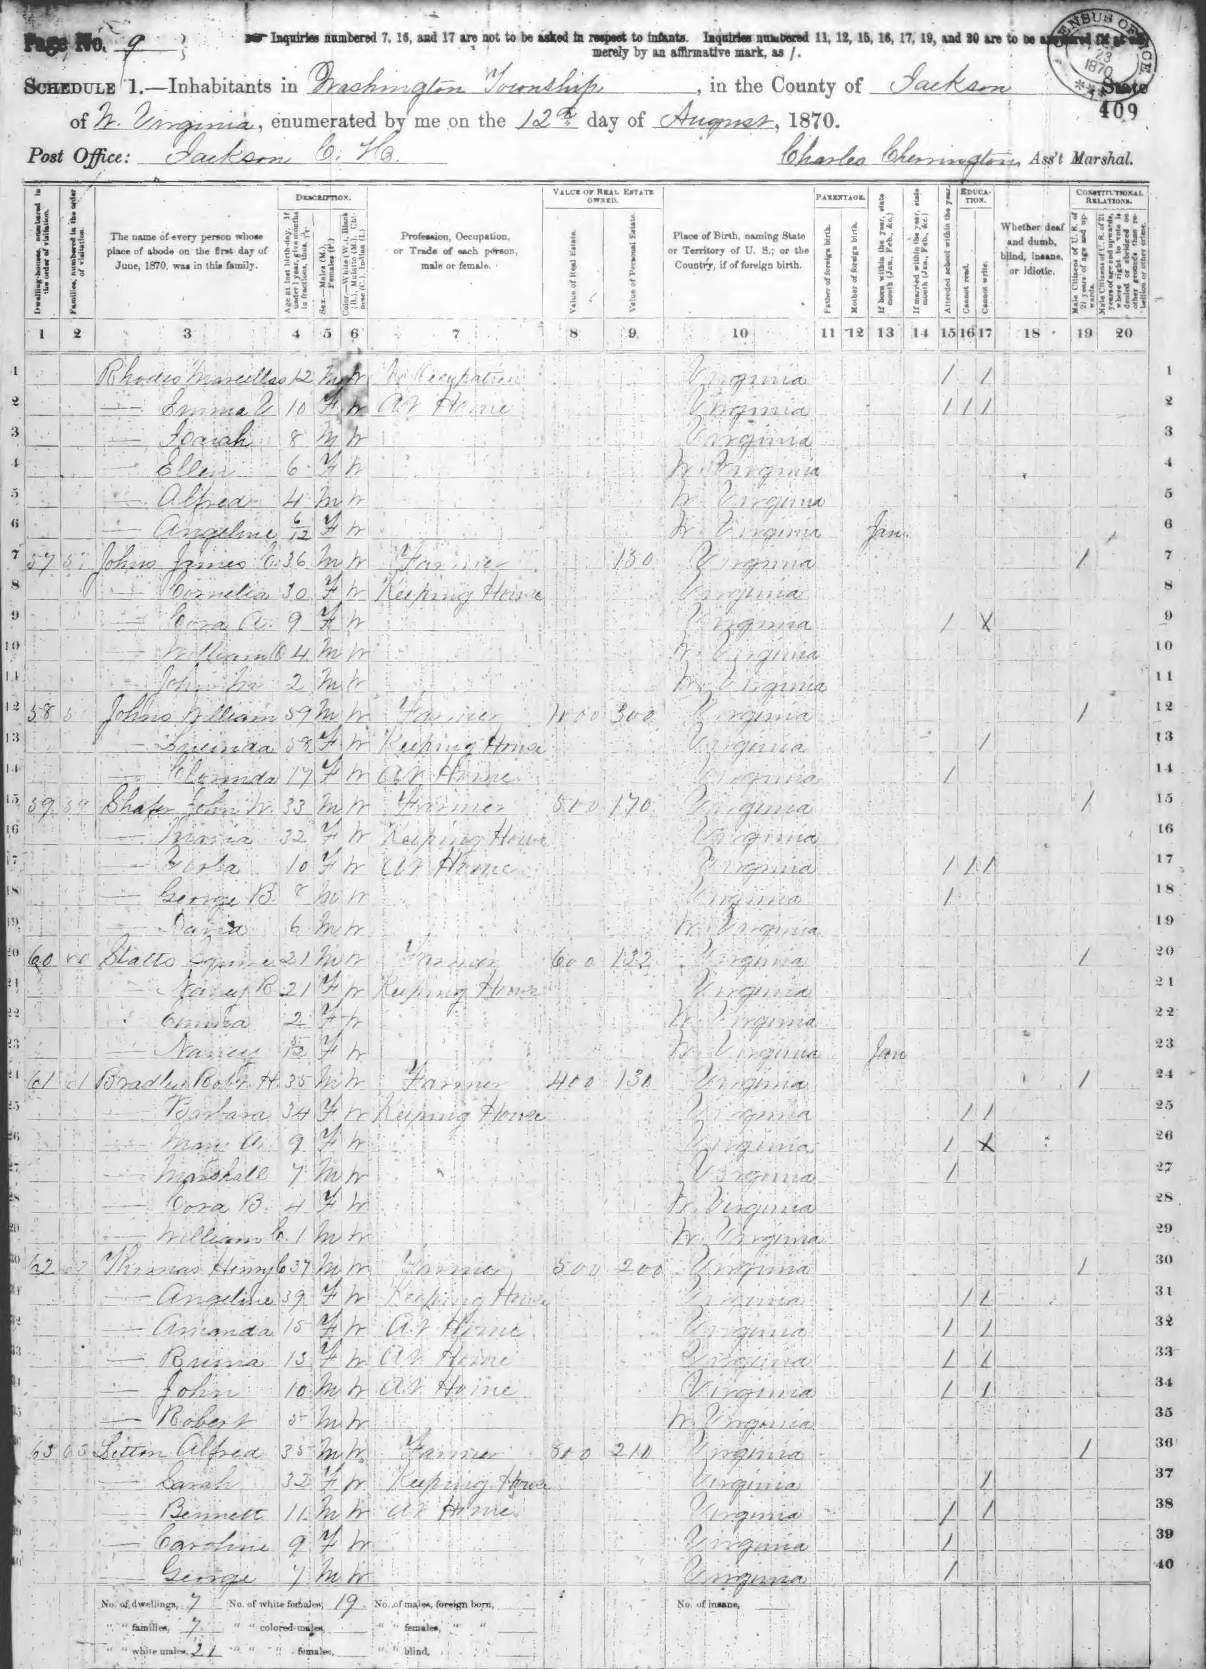 Page No. 9
Inquiries numbered 7, 16, and 17 are not to be asked in respect to infants. Inquiries numbered 11, 12, 15, 16, 17, 19, and 20 are to be answered (if at all)
merely by an affirmative mark, as /.
CENSUS OFFICE 23 1870
SCHEDULE 1.—Inhabitants in Washington Township, in the County of Jackson State
409
of W. Virginia, enumerated by me on the 12th day of August, 1870.
Post Office: Jackson C. Ho. Charles Cherrington, Ass't Marshal.
Dwelling-houses, numbered in the order of visitation.
Families, numbered in the order of visitation.
The name of every person whose place of abode on the first day of June, 1870, was in this family.
DESCRIPTION.
Age at last birth-day. If under 1 year, give months in fractions, thus,
Sex.—Males (M.), Females (F.)
Color.—White (W.), Black (B.), Mulatto (M.), Chinese (C.), Indian (I.)
Profession, Occupation, or Trade of each person, male or female.
VALUE OF REAL ESTATE OWNED.
Value of Real Estate.
Value of Personal Estate.
Place of Birth, naming State or Territory of U. S.; or the Country, if of foreign birth.
PARENTAGE.
Father of foreign birth.
Mother of foreign birth.
If born within the year, state month (Jan., Feb., &c.)
If married within the year, state month (Jan., Feb., &c.)
Attended school within the year.
EDUCATION.
Cannot read.
Cannot write.
Whether deaf and dumb, blind, insane, or idiotic.
CONSTITUTIONAL RELATIONS.
Male Citizens of U. S. of 21 years of age and upwards.
Male Citizens of U. S. of 21 years of age and upwards, where right to vote is denied or abridged on other grounds than rebellion or other crime.
1 2 3 4 5 6 7 8 9 10 11 12 13 14 15 16 17 18 19 20
1 Rhodes Marcellas 12 M W No Occupation Virginia / / 1
2 — Emma 10 F W At Home Virginia / / / 2
3 — Isaiah 8 M W Virginia 3
4 — Ellen 6 F W W. Virginia 4
5 — Alfred 4 M W W. Virginia 5
6 — Angeline 6/12 F W W. Virginia Jan 6
7 57 57 Johns James C. 36 M W Farmer 150 Virginia / 7
8 — Cornelia 30 F W Keeping House Virginia 8
9 — Cora A. 9 F W Virginia / X 9
10 — William C 4 M W W. Virginia 10
11 — John 2 M W W. Virginia 11
12 58 Johns William 59 M W Farmer 1000 300 Virginia / 12
13 — Lucinda 58 F W Keeping House Virginia / 13
14 — Clorinda 17 F W At Home Virginia / 14
15 59 59 Shafer John W. 33 M W Farmer 500 170 Virginia / 15
16 — Maria 32 F W Keeping House Virginia 16
17 — 10 F W At Home Virginia / / / 17
18 — George B. 8 M W Virginia / 18
19 — David 6 M W W. Virginia 19
20 60 60 Statts 21 M W Farmer 600 132 Virginia / 20
21 — Nancy B 21 F W Keeping House Virginia 21
22 — Emma 2 F W W. Virginia 22
23 — Nancy 5/12 F W W. Virginia Jan 23
24 61 61 Bradley Robt. H. 35 M W Farmer 400 130 Virginia / 24
25 — Barbara 34 F W Keeping House Virginia / / 25
26 — Mary A. 9 F W Virginia / X 26
27 — Marshall 7 M W Virginia / 27
28 — Cora B. 4 F W W. Virginia 28
29 — William C. 1 M W W. Virginia 29
30 62 62 Thomas Henry C 37 M W Farmer 500 200 Virginia / 30
31 — Angeline 39 F W Keeping House Virginia / / 31
32 — Amanda 15 F W At Home Virginia / / 32
33 — 13 F W At Home Virginia / / 33
34 — John 10 M W At Home Virginia / / 34
35 — Robert 5 M W W. Virginia 35
36 63 63 Sitton Alfred 35 M W Farmer 500 210 Virginia / 36
37 — Sarah 32 F W Keeping House Virginia / 37
38 — Bennett 11 M W At Home Virginia / / 38
39 — Caroline 9 F W Virginia / 39
40 — George 7 M W Virginia / 40
No. of dwellings, 7 No. of white females, 19 No. of males, foreign born, No. of insane,
" " families, 7 " " colored males, " " females, " "
" " white males, 21 " " " females, " " blind,